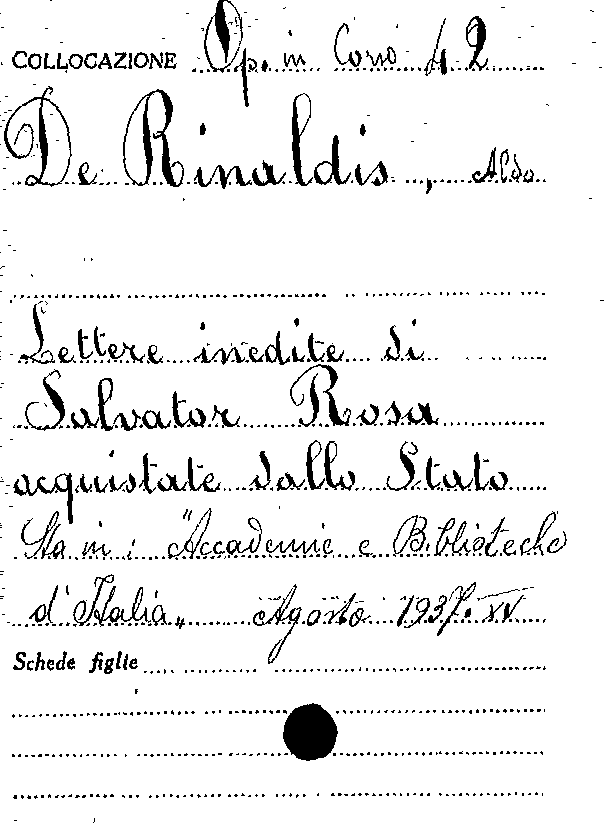 COLLOCAZIONE Op. in Corso 42
De Rinaldis, Aldo
Lettere inedite di
Salvator Rosa
acquistate dallo Stato
Sta in: "Accademie e Biblioteche
d'Italia„ Agosto 1937. XV
Schede figlie